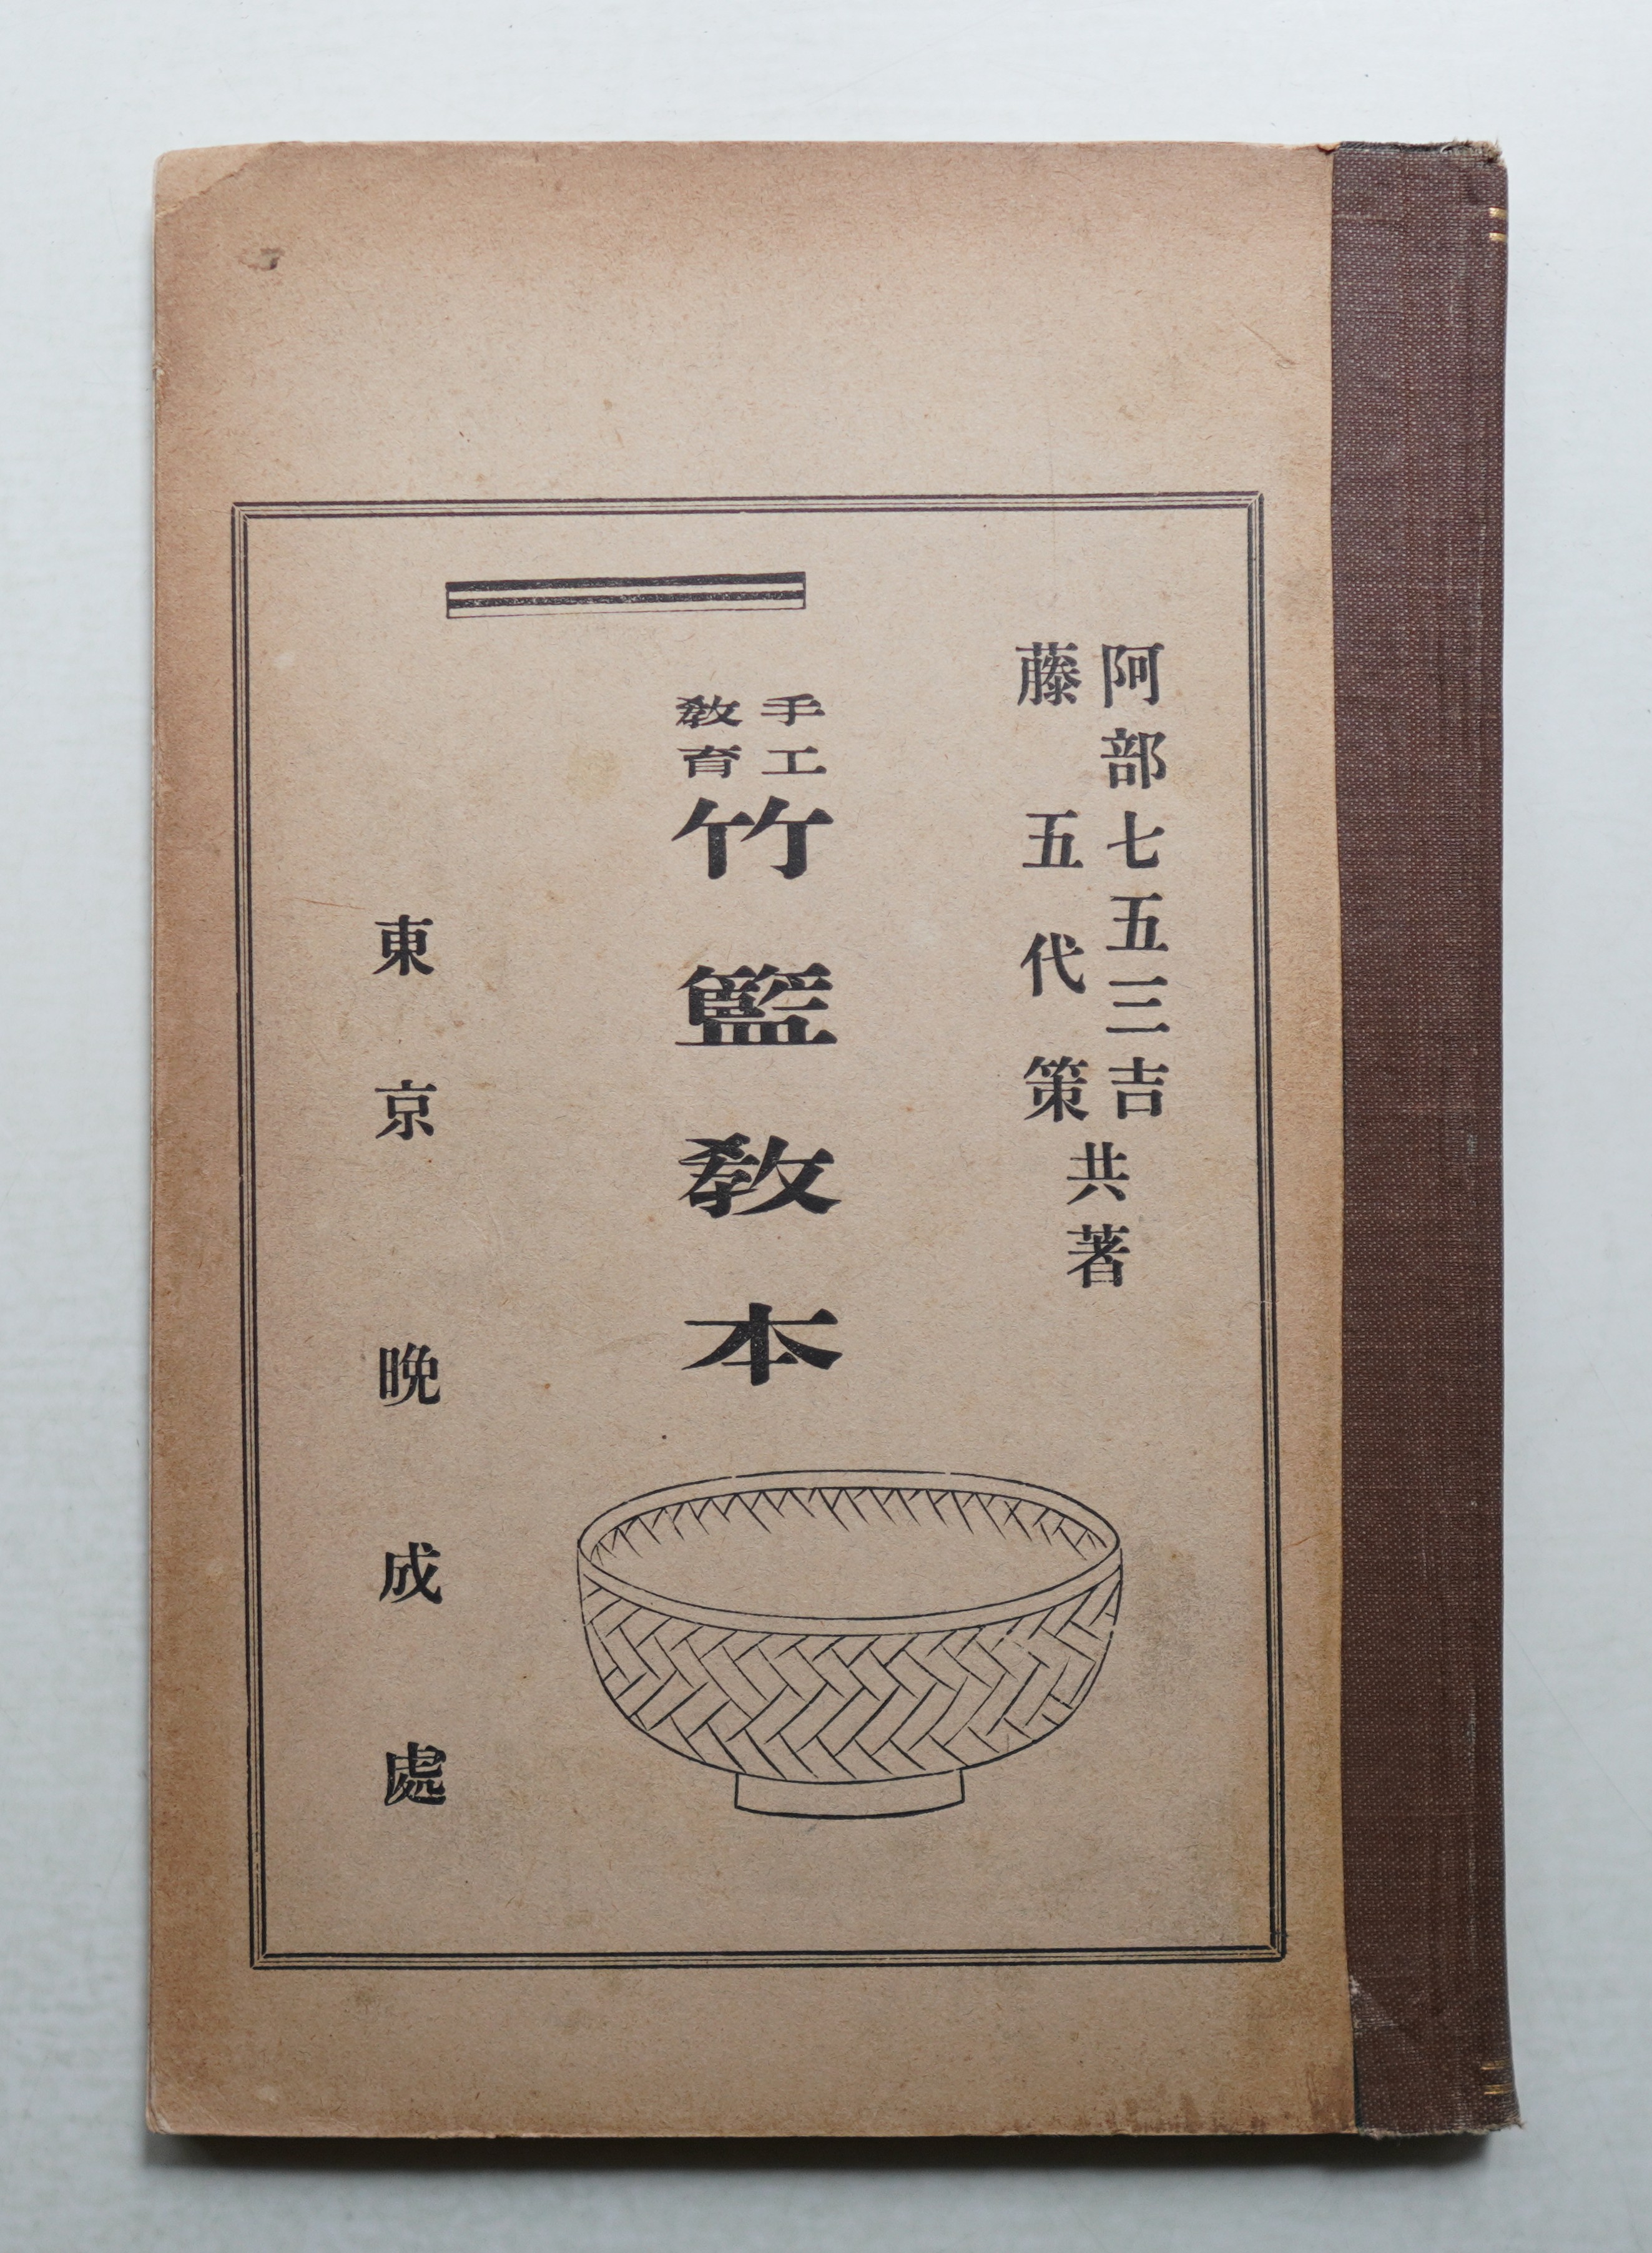 阿部七五三吉
藤五代策
共著
手工
教育
竹籃教本
東京 晩成處